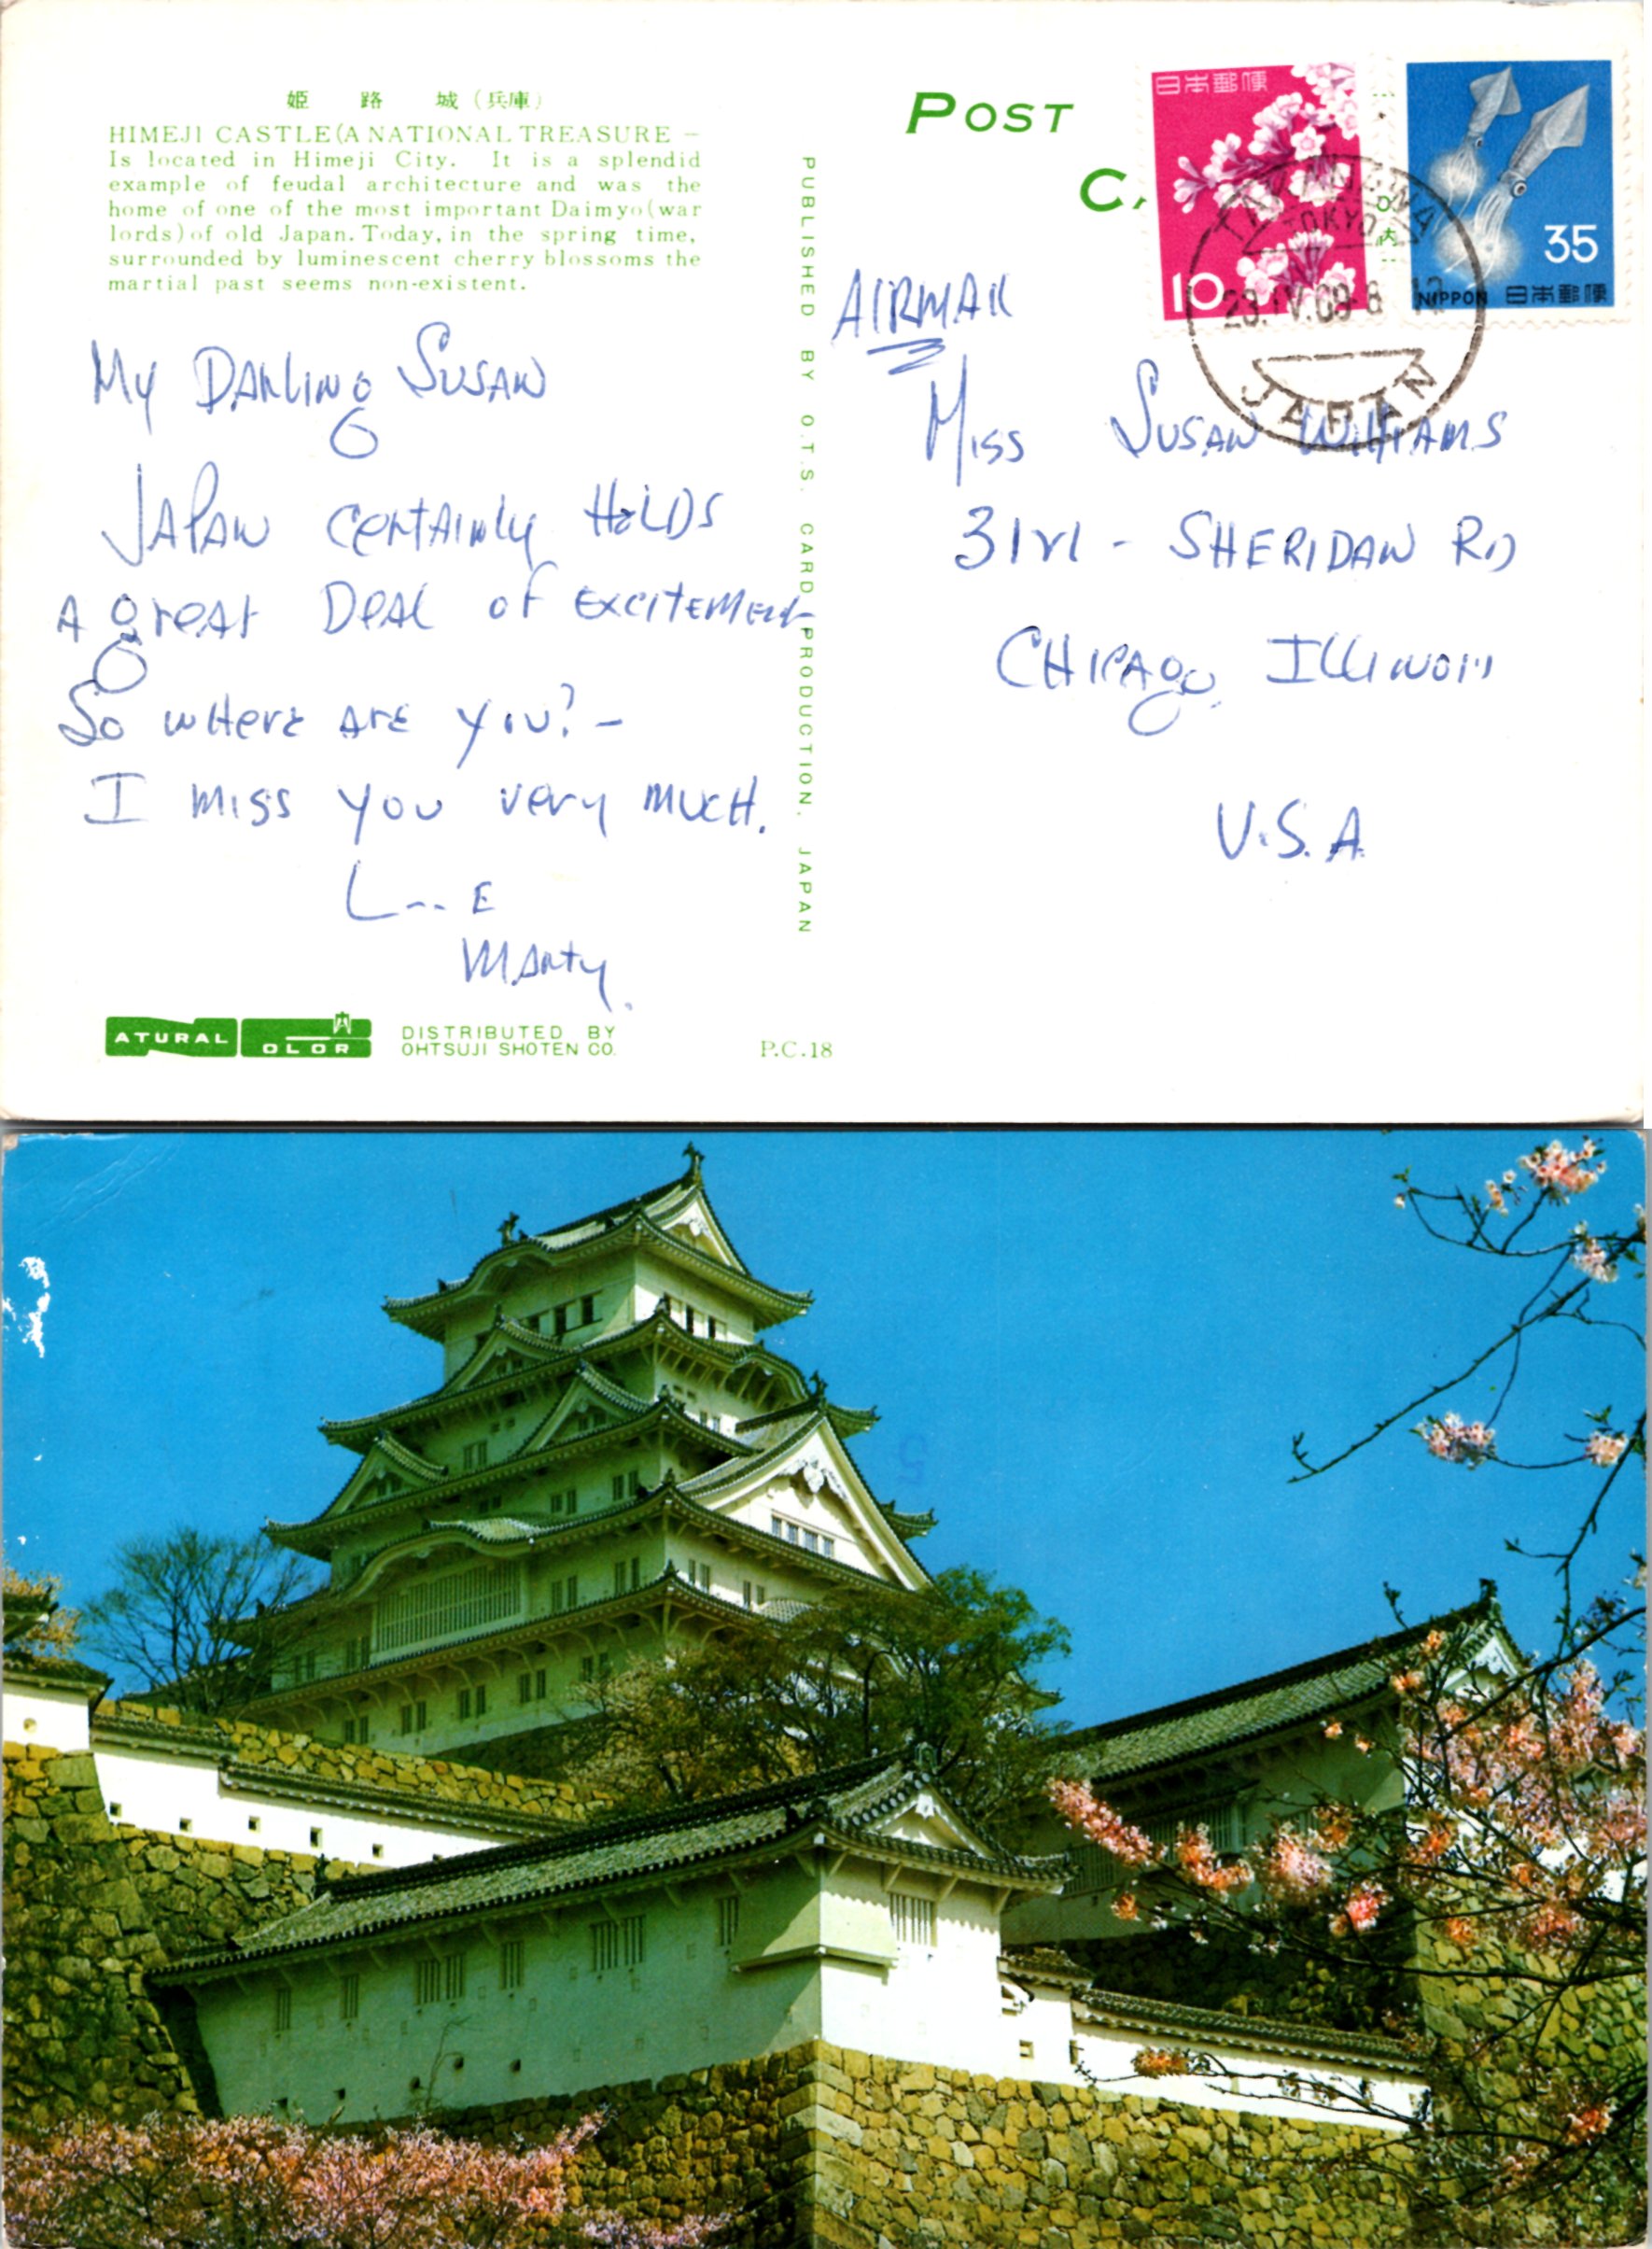 姫 路 城 (兵庫)
HIMEJI CASTLE (A NATIONAL TREASURE –
Is located in Himeji City. It is a splendid
example of feudal architecture and was the
home of one of the most important Daimyo (war
lords) of old Japan. Today, in the spring time,
surrounded by luminescent cherry blossoms the
martial past seems non-existent.
My Darling Susan
Japan certainly holds
a great deal of excitement
So where are you? –
I miss you very much.
L...E
Marty.
ATURAL OLOR
DISTRIBUTED BY
OHTSUJI SHOTEN CO.
P.C.18
PUBLISHED BY O.T.S. CARD PRODUCTION, JAPAN
POST
CA
日本郵便
10
35
NIPPON 日本郵便
TOKYO
JAPAN
AIRMAIL
Miss Susan Williams
SHERIDAN RD
Chicago, Illinois
U.S.A
5